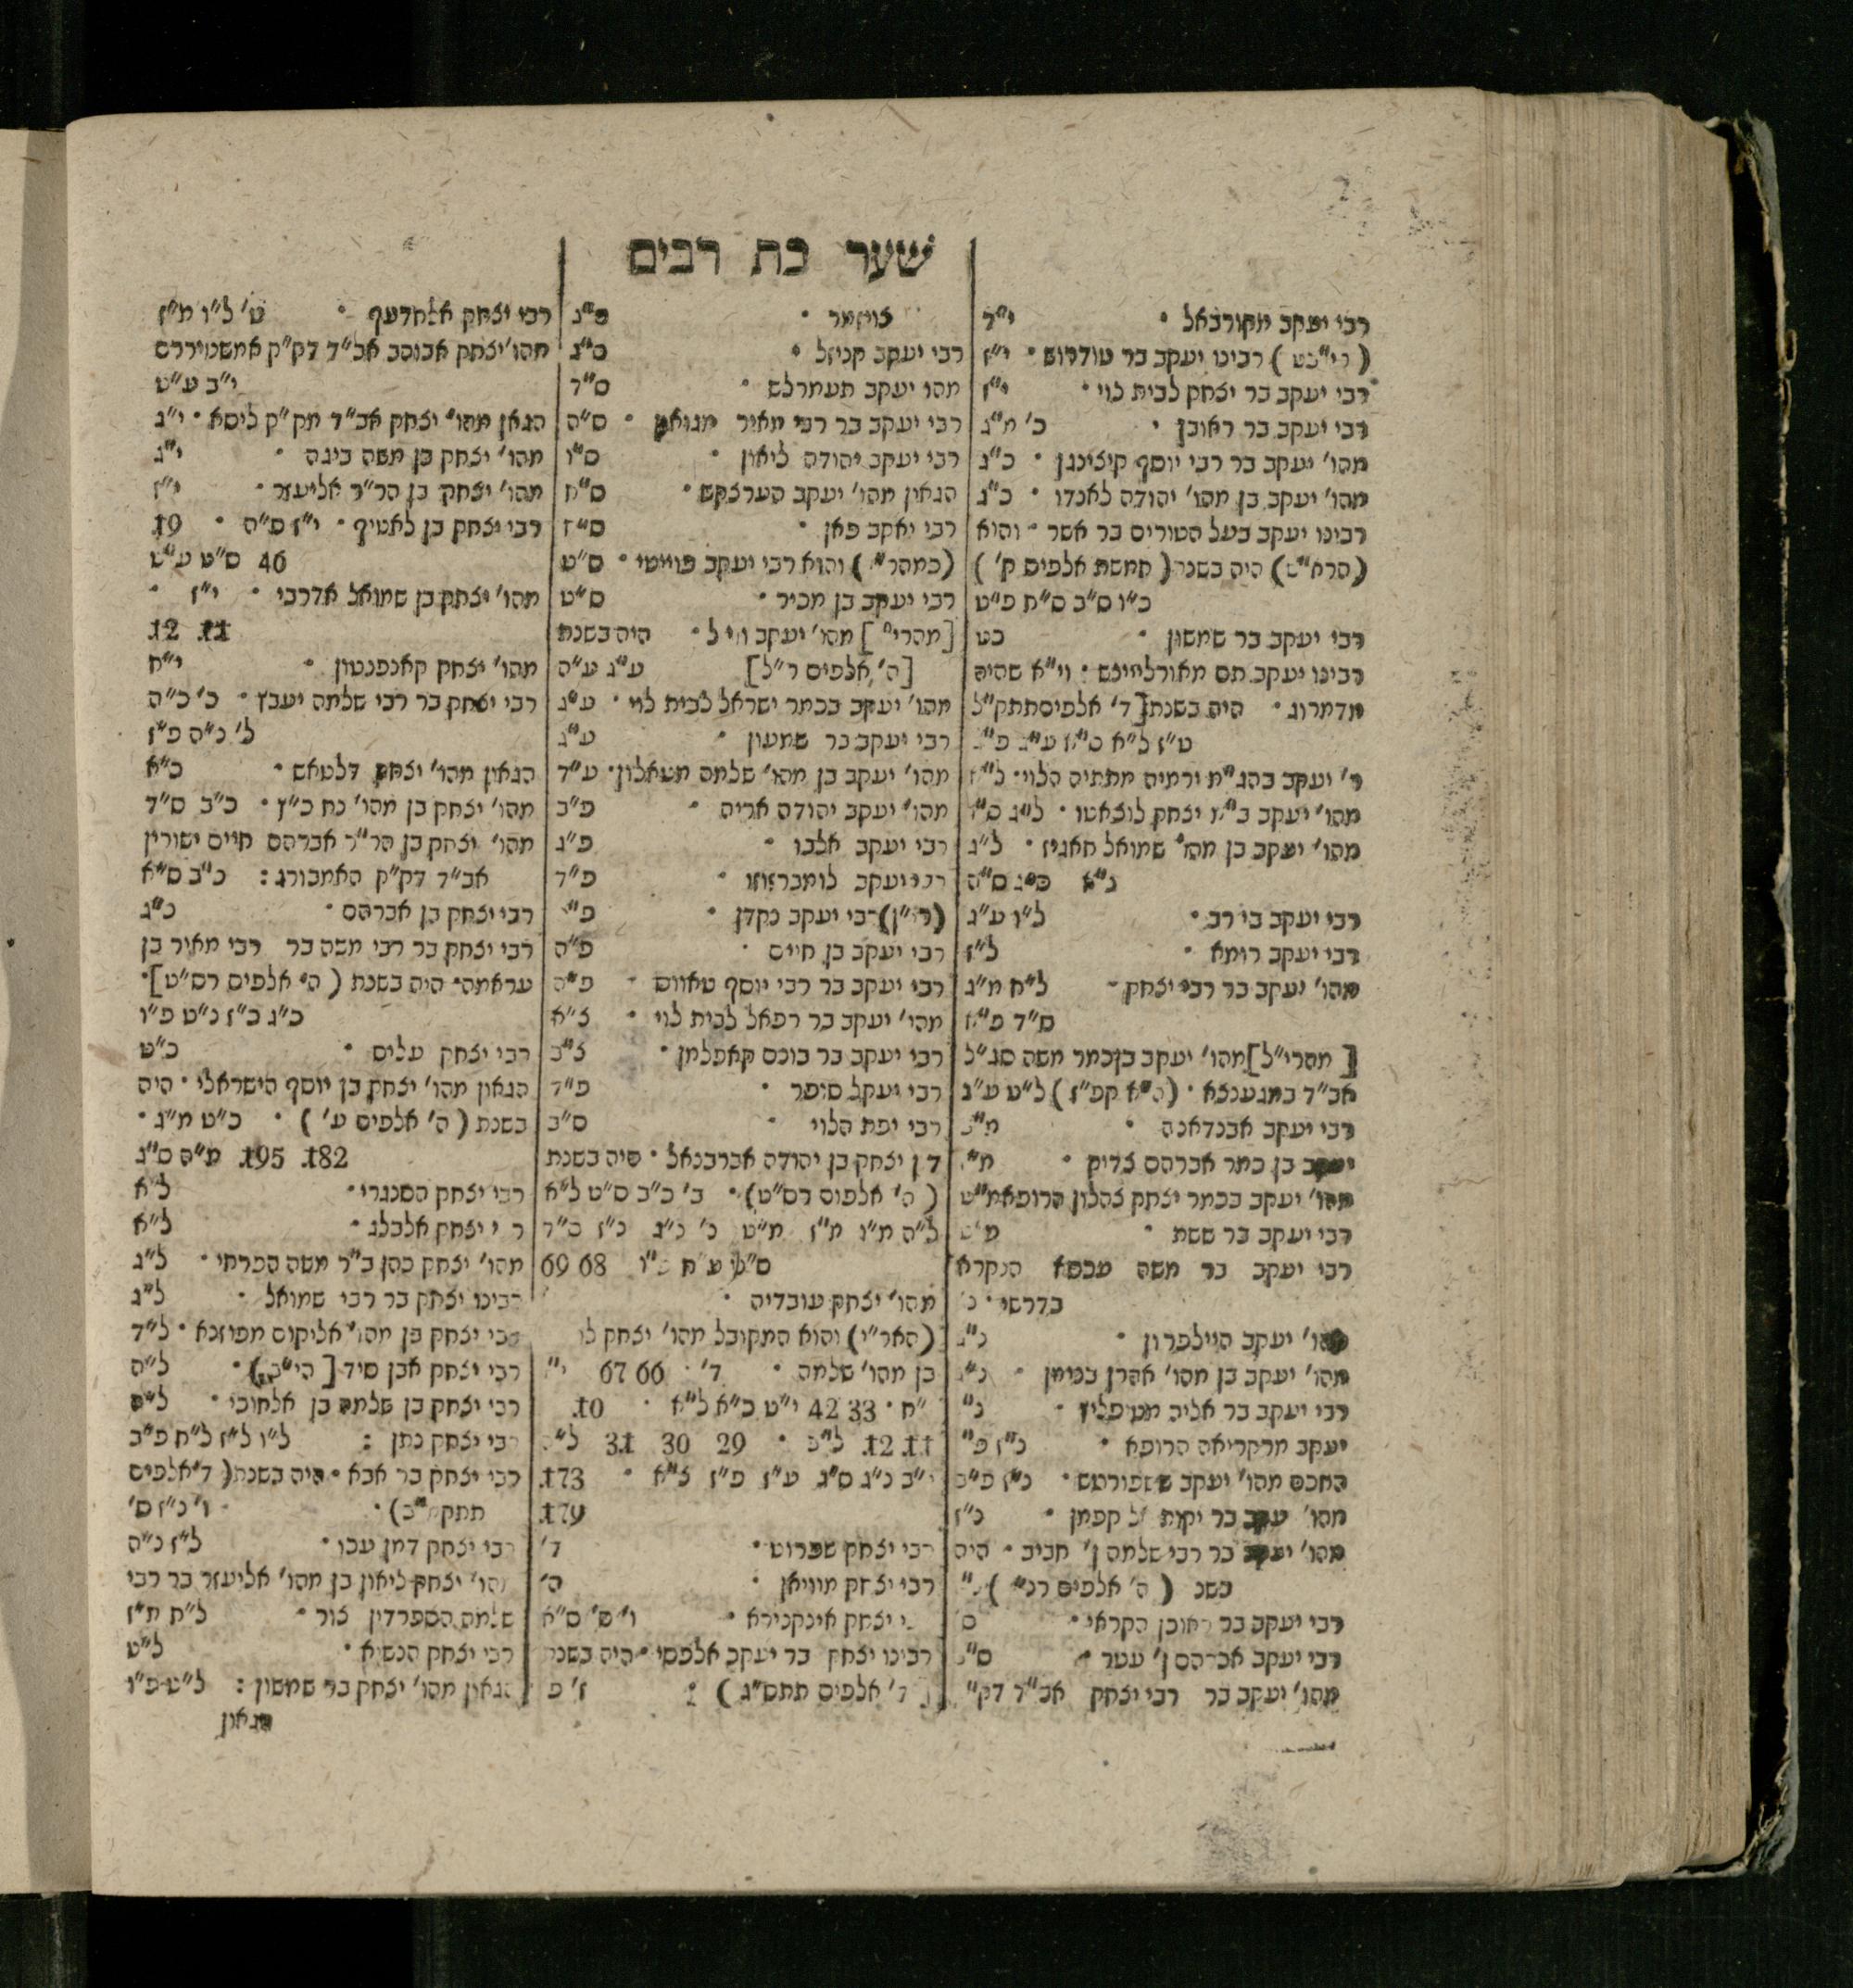 שער בת רבים
רבי יעקב מקורבאל · י"ד
(ריב"ט) רבינו יעקב בר טודרוס · י"ז
רבי יעקב בר יצחק לבית לוי · י"ז
רבי יעקב בר ראובן · כ' מ"ג
מהו' יעקב בר רבי יוסף קיצינגן · כ"ג
מהו' יעקב בן מהו' יהודה לאנדו · כ"ג
רבינו יעקב בעל הטורים בר אשר · והוא
היה בשנת (חמשת אלפים ק')
כ"ו ס"ב ס"ח פ"ט
רבי יעקב בר שמשון · כט
רבינו יעקב תם מאורלייניש · וי"א שהיה
מדמרוג · היה בשנת [ד' אלפים תתק"ל
ט"ז ל"א
ר' יעקב בהג"מ ירמיה מתתיה הלוי ·
מהו' יעקב יצחק לוצאטו · ל"ג
מהו' יעקב בן מהו' שמואל חאגיז · ל"ג
רבי יעקב בי רב · ל"ו ע"ג
רבי יעקב רומא · ל"ז
מהו' יעקב בר רבי יצחק · ל"ח מ"ג
ס"ד
[מהרי"ל] מהו' יעקב בן כמר משה סג"ל
אב"ד במגענצא · (ה"א קפ"ז) ל"ט ע"ג
רבי יעקב אבנדאנה ·
יעקב בן כמר אברהם צדיק ·
מהו' יעקב בכמר יצחק צהלון הרופא מ"ט
רבי יעקב בר ששת ·
רבי יעקב בר משה הנקרא
בדרשי ·
מהו' יעקב היילפרון ·
מהו' יעקב בן מהו' אהרן ·
רבי יעקב בר אליה ·
יעקב מרקריאה הרופא ·
החכם מהו' יעקב ששפורטש ·
מהו' יעקב בר קפמן · נ"ז
מהו' יעקב בר רבי שלמה ן' חביב · היה
(ה' אלפים
רבי יעקב בר ראובן הקראי ·
רבי יעקב אברהם ן' עטר ·
מהו' יעקב בר רבי יצחק אב"ד דק"
צוימר · ס"ג
רבי יעקב קניזל · ס"ג
מהו יעקב תעמרלש · ס"ד
רבי יעקב בר רבי מאיר · ס"ה
רבי יעקב יהודה ליאון · ס"ו
הגאון מהו' יעקב הערצקש · ס"ח
רבי יאקב פאן · ס"ז
והוא רבי יעקב פוייטי · ס"ט
רבי יעקב בן מכיר · ס"ט
מהו' יעקב ווייל · היה בשנת
[ה' אלפים ר"ל] ע"ג ע"ה
מהו' יעקב בכמר ישראל לבית לוי · ע"ג
רבי יעקב בר שמעון · ע"ג
מהו' יעקב בן מהו' שלמה משאלון · ע"ד
מהו' יעקב יהודה אריה · פ"ב
רבי יעקב אלבו · פ"ג
רבי יעקב לומברוזו · פ"ד
רבי יעקב נקדן ·
רבי יעקב בן חיים · פ"ה
רבי יעקב בר רבי יוסף טאווס · פ"ה
מהו' יעקב בר רפאל לבית לוי · צ"א
רבי יעקב בר בונם קאפלמן · צ"ב
רבי יעקל סופר · פ"ד
רבי יפת הלוי · ס"ב
דן יצחק בן יהודה אברבנאל · היה בשנת
(ה' אלפים רס"ט) · ב' כ"ב ס"ט ל"א
ל"ה מ"ו מ"ז מ"ט כ' נ"ג נ"ז ס"ד
68 69
מהו' יצחק עובדיה ·
(האר"י) והוא המקובל מהו' יצחק לו
בן מהו' שלמה · ד' · 66 67
י"ח · 33 42 י"ט כ"א ל"א · 10.
11. 12. · 29 30 31.
נ"ב נ"ג ס"ג ע"ז פ"ז צ"א · 173.
179.
רבי יצחק שפרוט · ד'
רבי יצחק מוויאן · ה'
יצחק אינקנירא · ו' ס' ס"א
רבינו יצחק בר יעקב אלפסי · היה בשנת
ד' אלפים תתס"ג) :
רבי יצחק אלחדעף · ט' ל"ו מ"ז
מהו' יצחק אבוהב אב"ד דק"ק אמשטירדם
י"ב ע"ט
הגאון מהו' יצחק אב"ד מק"ק ליסא · י"ג
מהו' יצחק בן משה ביגה · י"ג
מהו' יצחק בן הר"ר אליעזר · י"ז
רבי יצחק בן לאטיף · י"ז ס"ה · 19.
46 ס"ט ע"ט
מהו' יצחק בן שמואל אדרבי · י"ז ·
11. 12.
מהו' יצחק קאנפנטון · י"ח
רבי יצחק בר רבי שלמה יעבץ · כ' כ"ה
ל' נ"ה פ"ז
הגאון מהו' יצחק דלטאש · כ"א
מהו' יצחק בן מהו' נח כ"ץ · כ"ב ס"ד
מהו' יצחק בן הר"ר אברהם חיים ישורין
אב"ד דק"ק האמבורג : כ"ב ס"א
רבי יצחק בן אברהם · כ"ג
רבי יצחק בר רבי משה בר רבי מאיר בן
עראמה · היה בשנת (ה' אלפים רס"ט] ·
כ"ג כ"ז נ"ט פ"ו
רבי יצחק עלים · כ"ט
הגאון מהו' יצחק בן יוסף הישראלי · היה
בשנת (ה' אלפים ע') · כ"ט מ"ג ·
182. 195. מ"ה ס"ג
רבי יצחק הסנגרי · ל"א
ר' יצחק אלבלג · ל"א
מהו' יצחק כהן ב"ר משה הפרחי · ל"ג
רבינו יצחק בר רבי שמואל · ל"ג
רבי יצחק בן מהו' אליקום מפוזנא · ל"ד
רבי יצחק אבן סיד · ל"ה
רבי יצחק בן שלמה בן אלחוכי · ל"ה
רבי יצחק נתן : ל"ו ל"ז ל"ח פ"ב
רבי יצחק בר אבא · היה בשנת (ד' אלפים
· ו' נ"ז ס'
רבי יצחק דמן עכו · ל"ז נ"ה
מהו' יצחק ליאון בן מהו' אליעזר בר רבי
שלמה הספרדין צור · ל"ח מ"ז
רבי יצחק הנשיא · ל"ט
הגאון מהו' יצחק בר שמשון : ל"ט פ"ו
הגאון